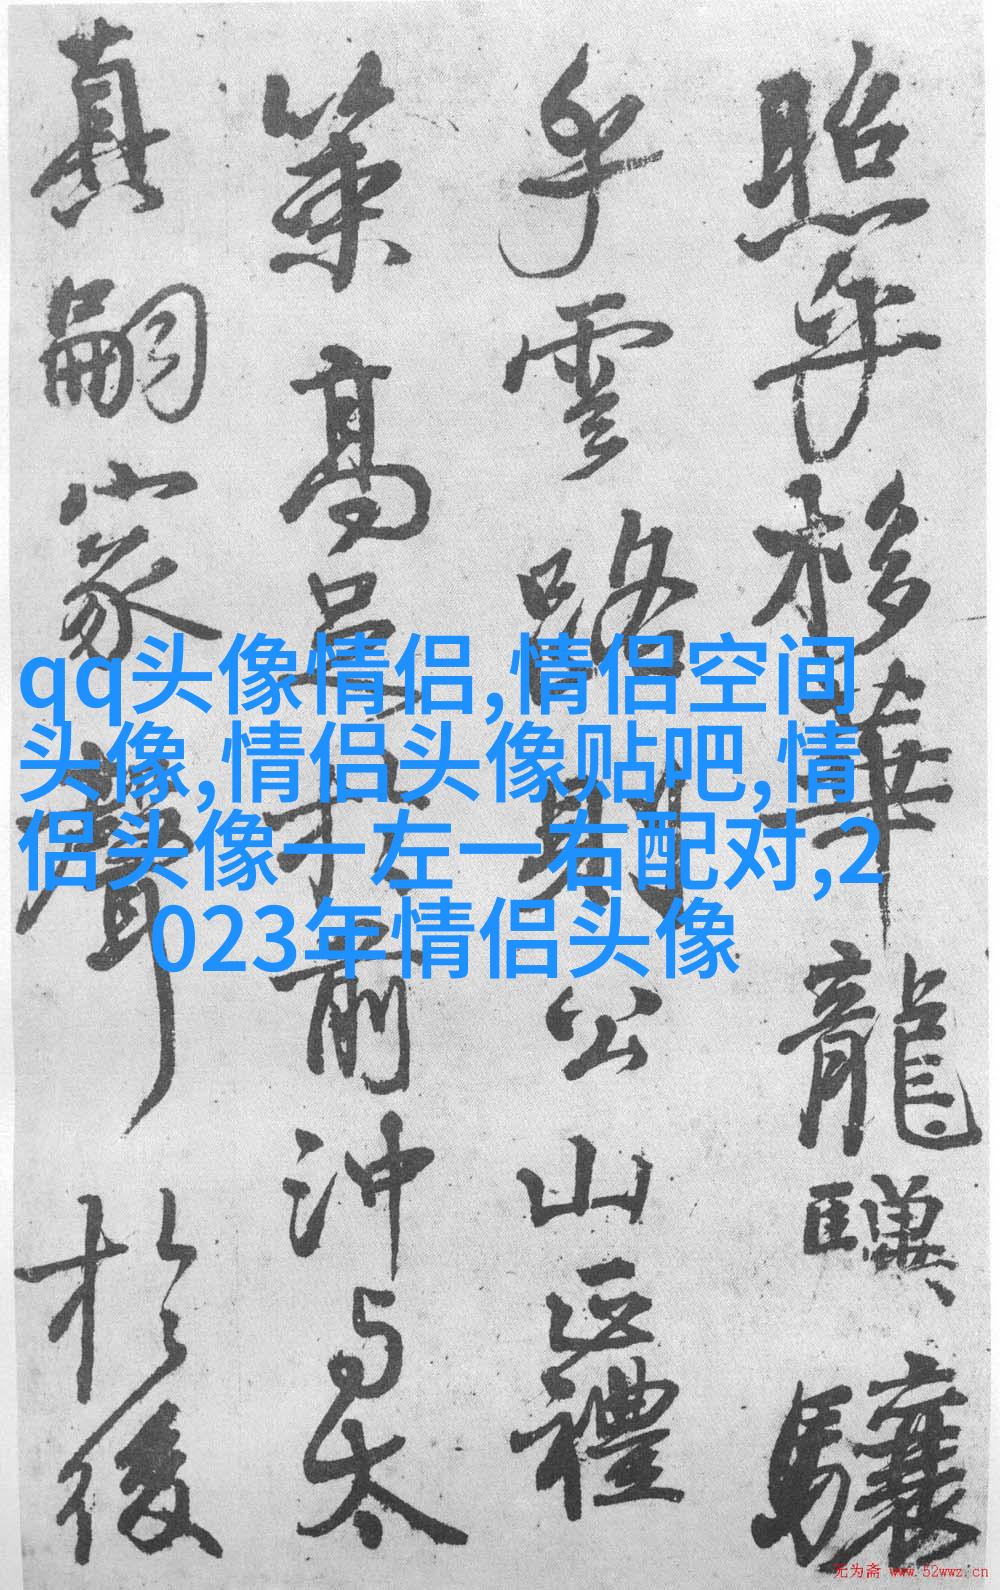 照乎移華龍驥驤
乎雲路則公山正禮
策高足於前沖与太
真嗣家聲於後
qq头像情侣,情侣空间
头像,情侣头像贴吧,情
侣头像一左一右配对,2
023年情侣头像
无为斋 www.52wwz.cn